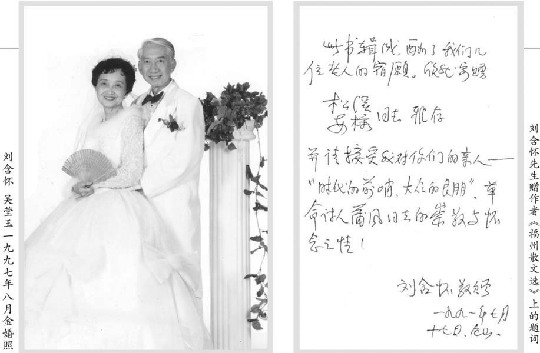 刘含怀 吴莹玉一九九七年八月金婚照
此书辑成,酬了我们几
位老人的宿愿。欣此寄赠
松溪
同志 雅存
并请接受我对你们的亲人——
"时代的前哨,大众的良朋",革
命诗人蒲风同志的崇敬与怀
念之情!
刘含怀敬赠
一九九一年七月
十七日,仓山.
刘含怀先生赠作者《扬州散文选》上的题词